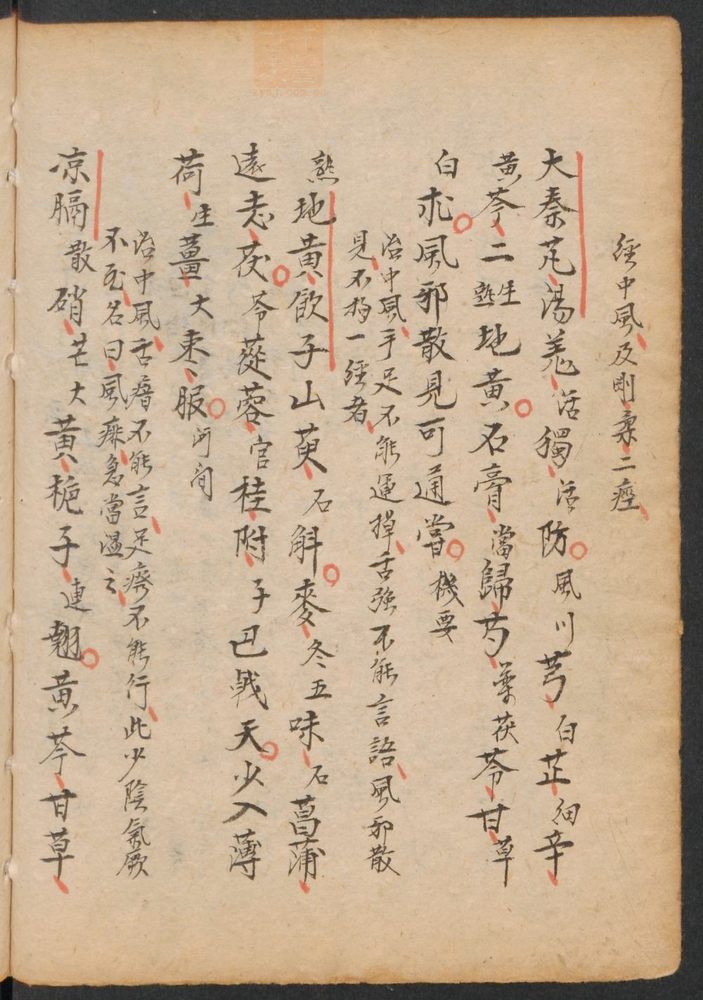 經中風及剛柔二痙
大秦艽湯羌活獨活防風川芎白芷細辛
黃芩二生熟地黃石膏當歸芍藥茯苓甘草
白朮風邪散見可通嘗機要
治中風手足不能運掉舌強不能言語風邪散
見不拘一經者
熟地黃飲子山萸石斛麥冬五味石菖蒲
遠志茯苓蓯蓉官桂附子巴戟天少入薄
荷生薑大棗服河間
治中風舌瘖不能言足痹不能行此少陰氣厥
不至名曰風痱急當溫之
凉膈散硝芒大黃梔子連翹黃芩甘草